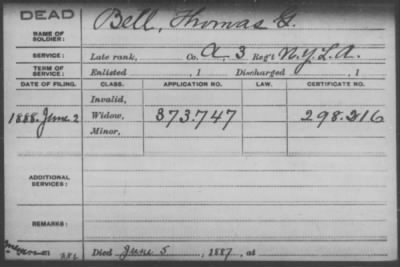 DEAD
NAME OF SOLDIER: Bell, Thomas G.
SERVICE: Late rank, Co. A. 3 Reg't N.Y.L.A.
TERM OF SERVICE: Enlisted , 1 Discharged , 1
DATE OF FILING. CLASS. APPLICATION NO. LAW. CERTIFICATE NO.
Invalid,
1888. June 2 Widow, 373.747 298.216
Minor,
ADDITIONAL SERVICES:
REMARKS:
Died June 5, 1887, at